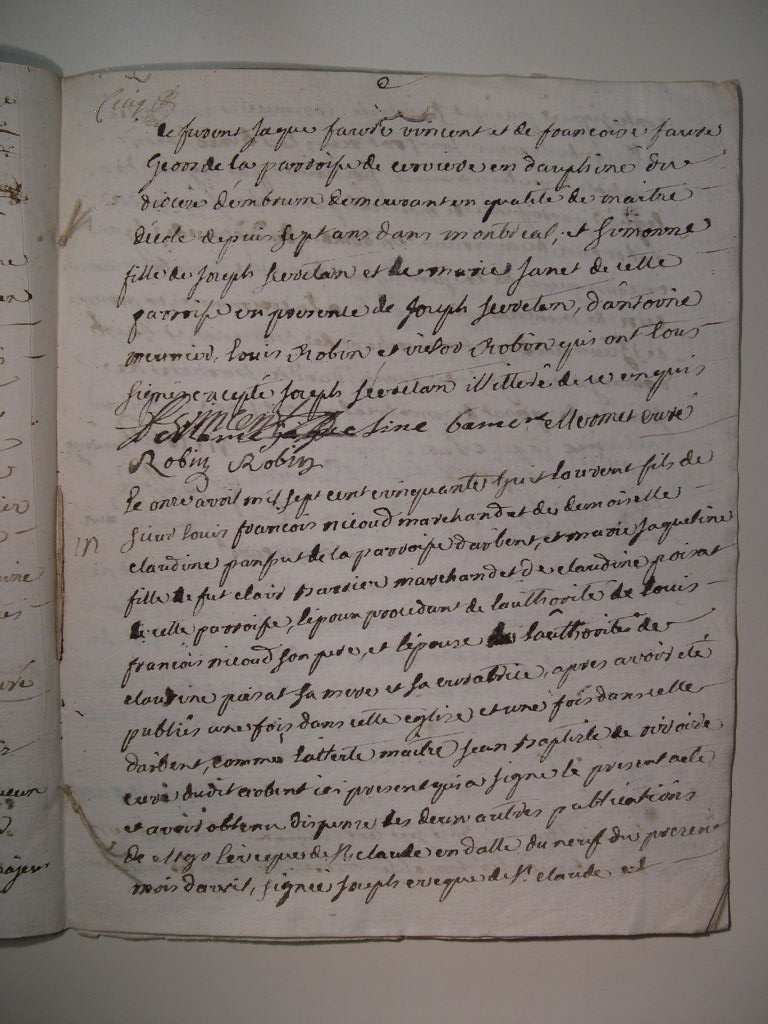 Cinq
2
de furent Jaque faure vincent et de francoise faure
Geors de la parroise de cerviere en dauphiné du
diocise d'embrum demeurant en qualité de maitre
décole depuis sept ans dans montreal, et simonne
fille de Joseph secretan et de marie Janet de celle
parroise en presence de Joseph secretan, d'antoine
meunier, louis Robin et victor Robin qui ont tous
signés excepté Joseph secretan illitéré de ce enquis
vincent Sine curé
Robin Robin
le onze avril mil sept cent cinquante huit fils de
sieur louis francois nicoud marchand et de demoiselle
claudine panfut de la parroise d'arbent, et marie Jaqueline
fille de fut clair marchand et de claudine poisat
de celle parroise, l'epoux procedant de lauthorité de louis
francois nicoud son pere, et l'epouse de lauthorité de
claudine poisat sa mere et sa curatrice, apres avoir eté
publiés une fois dans cette eglise et une fois dans celle
darbent, comme l'atteste maitre Jean baptiste de
curé dudit arbent ici present qui a signé le present acte
et avoir obtenu dispense des deux autres publications
de l'eveque de St claude en datte du neuf du present
mois davril, signée Joseph eveque de St. claude et